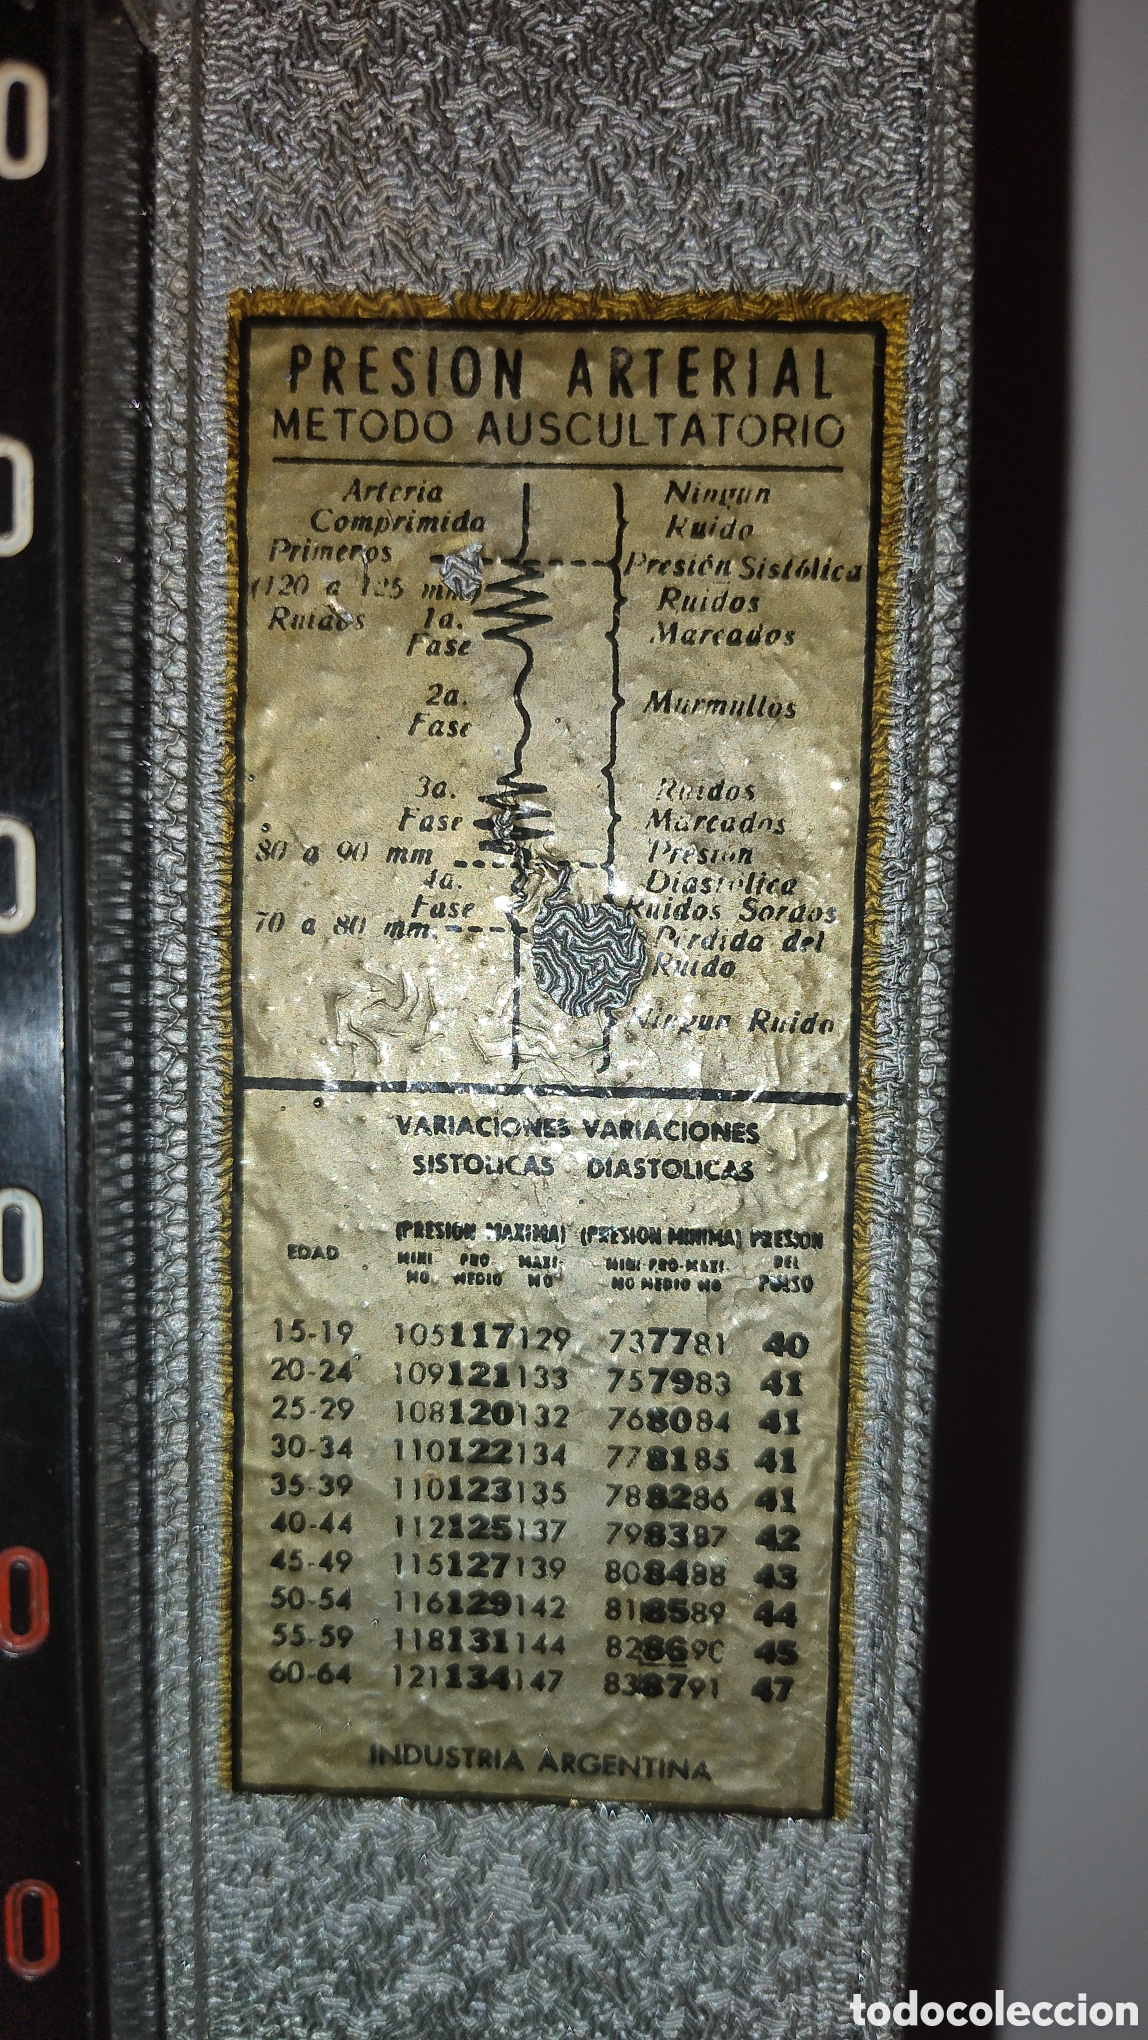 PRESION ARTERIAL
METODO AUSCULTATORIO
Arteria
Comprimida
Ningun
Ruido
Primeros
Presión Sistólica
(120 a 125 mm)
Ruidos
1a.
Fase
Ruidos
Marcados
2a.
Fase
Murmullos
3a.
Fase
Ruidos
Marcados
80 a 90 mm
Presión
Diastólica
4a.
Fase
Ruidos Sordos
70 a 80 mm.
Perdida del
Ruido
Ningun Ruido
VARIACIONES VARIACIONES
SISTOLICAS DIASTOLICAS
(PRESION MAXIMA) (PRESION MINIMA) PRESION
EDAD MINI PRO MAXI- MINI-PRO-MAXI. DEL
MO MEDIO MO MO MEDIO MO PULSO
15-19 105 117 129 73 77 81 40
20-24 109 121 133 75 79 83 41
25-29 108 120 132 76 80 84 41
30-34 110 122 134 77 81 85 41
35-39 110 123 135 78 82 86 41
40-44 112 125 137 79 83 87 42
45-49 115 127 139 80 84 88 43
50-54 116 129 142 81 85 89 44
55-59 118 131 144 82 86 90 45
60-64 121 134 147 83 87 91 47
INDUSTRIA ARGENTINA
0
0
0
0
0
0
todocoleccion